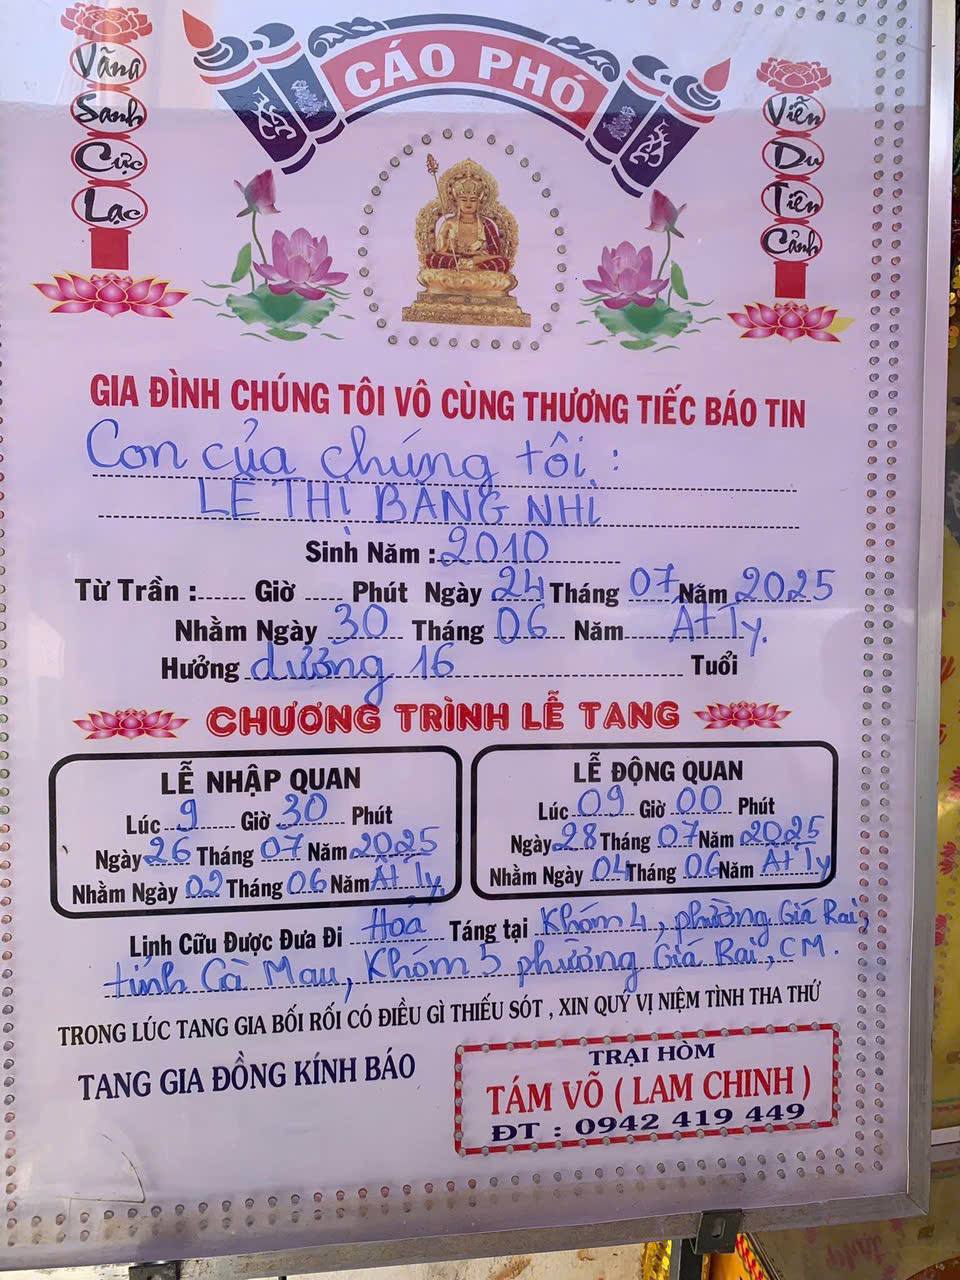 CÁO PHÓ
Vãng
Sanh
Cực
Lạc
Viễn
Du
Tiên
Cảnh
GIA ĐÌNH CHÚNG TÔI VÔ CÙNG THƯƠNG TIẾC BÁO TIN
Con của chúng tôi :
LÊ THỊ BĂNG NHI
Sinh Năm : 2010
Từ Trần :...... Giờ ..... Phút Ngày 24 Tháng 07 Năm 2025
Nhằm Ngày 30 Tháng 06 Năm Ất Tỵ.
Hưởng dưỡng 16 Tuổi
CHƯƠNG TRÌNH LỄ TANG
LỄ NHẬP QUAN
Lúc 9 Giờ 30 Phút
Ngày 26 Tháng 07 Năm 2025
Nhằm Ngày 02 Tháng 06 Năm Ất Tỵ
LỄ ĐỘNG QUAN
Lúc 09 Giờ 00 Phút
Ngày 28 Tháng 07 Năm 2025
Nhằm Ngày 04 Tháng 06 Năm Ất Tỵ
Linh Cữu Được Đưa Đi Hoả Táng tại Khóm 4, phường Giá Rai,
tỉnh Cà Mau, Khóm 5 phường Giá Rai, CM.
TRONG LÚC TANG GIA BỐI RỐI CÓ ĐIỀU GÌ THIẾU SÓT , XIN QUÝ VỊ NIỆM TÌNH THA THỨ
TANG GIA ĐỒNG KÍNH BÁO
TRẠI HÒM
TÁM VÕ ( LAM CHINH )
ĐT : 0942 419 449